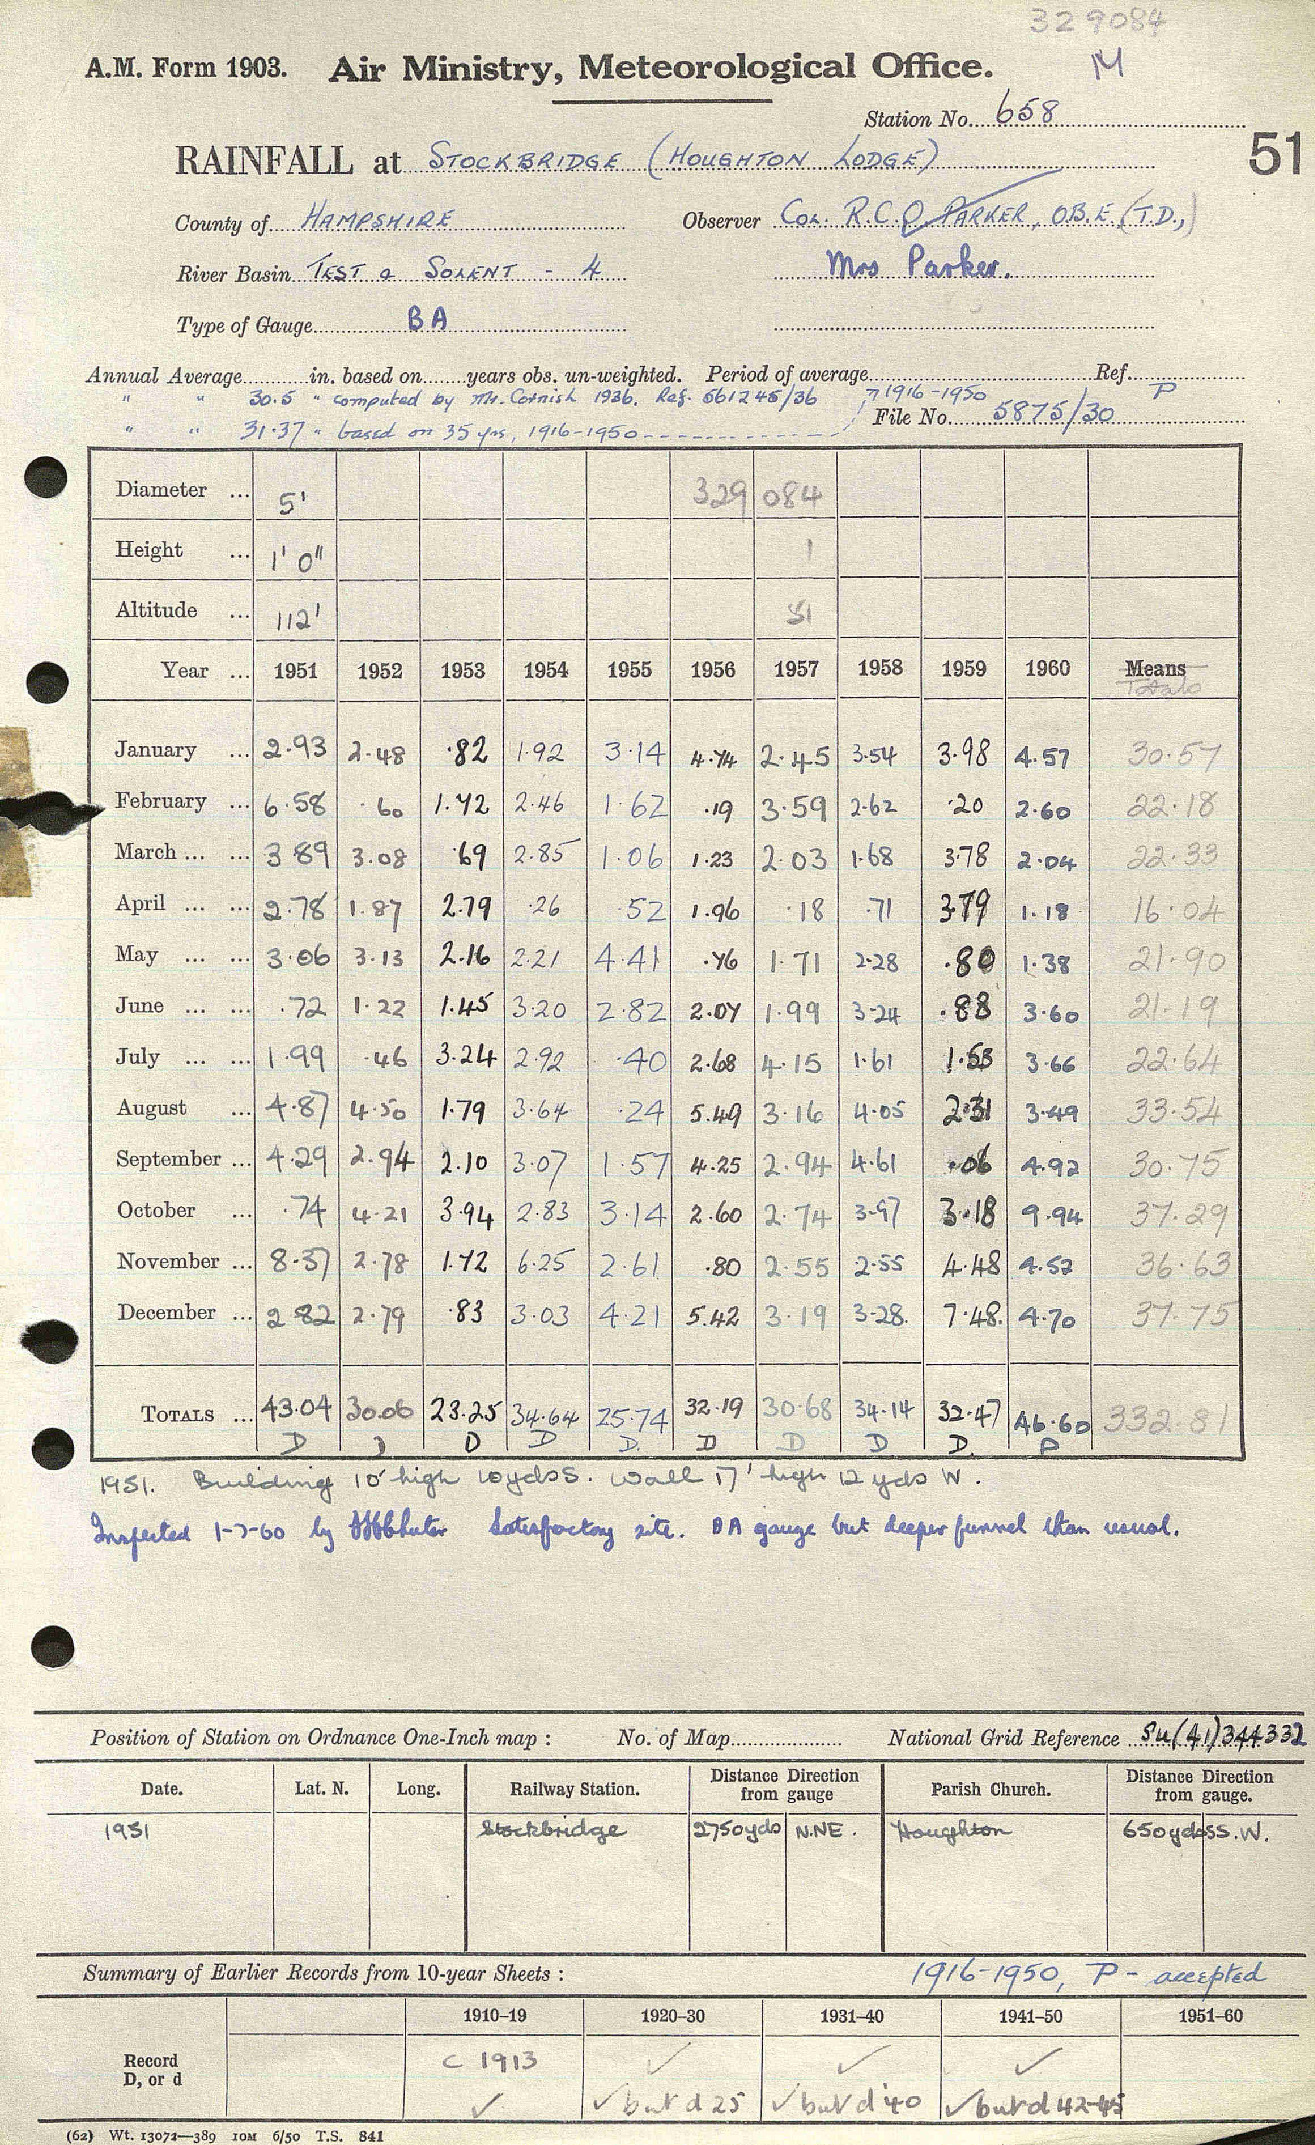 329084
A.M. Form 1903. Air Ministry, Meteorological Office. M
Station No. 658
RAINFALL at STOCKBRIDGE (HOUGHTON LODGE) 51
County of HAMPSHIRE Observer COL. R.C.O. PARKER, O.B.E. (T.D.,)
River Basin TEST & SOLENT - 4 Mrs Parker.
Type of Gauge BA
Annual Average in. based on years obs. un-weighted. Period of average Ref.
" " 30.5 " computed by Mr. Cornish 1936. Ref. 561245/36 1916-1950 P
File No. 5875/30
" " 31.37 " based on 35 yrs, 1916-1950
Diameter ... 5' 329 084
Height ... 1' 0" 1
Altitude ... 112' 51
Year ... 1951 1952 1953 1954 1955 1956 1957 1958 1959 1960 Means
Totals
January ... 2.93 2.48 .82 1.92 3.14 4.74 2.45 3.54 3.98 4.57 30.57
February ... 6.58 .60 1.72 2.46 1.62 .19 3.59 2.62 .20 2.60 22.18
March ... ... 3 89 3.08 .69 2.85 1.06 1.23 2.03 1.68 3.78 2.04 22.33
April ... ... 2.78 1.87 2.79 .26 .52 1.96 .18 .71 3.79 1.18 16.04
May ... ... 3.06 3.13 2.16 2.21 4.41 .76 1.71 2.28 .80 1.38 21.90
June ... ... .72 1.22 1.45 3.20 2.82 2.07 1.99 3.24 .88 3.60 21.19
July ... ... 1.99 .46 3.24 2.92 .40 2.68 4.15 1.61 1.53 3.66 22.64
August ... 4.87 4.50 1.79 3.64 .24 5.49 3.16 4.05 2.31 3.49 33.54
September ... 4.29 2.94 2.10 3.07 1.57 4.25 2.94 4.61 .06 4.92 30.75
October ... .74 4.21 3.94 2.83 3.14 2.60 2.74 3.97 3.18 9.94 37.29
November ... 8.37 2.78 1.72 6.25 2.61 .80 2.55 2.55 4.48 4.52 36.63
December ... 2.82 2.79 .83 3.03 4.21 5.42 3.19 3.28. 7.48. 4.70 37.75
TOTALS ... 43.04 30.06 23.25 34.64 25.74 32.19 30.68 34.14 32.47 46.60 332.81
D D D D D. D D D D. D
1951. Building 10' high 10yds S. Wall 17' high 12 yds W.
Inspected 1-7-60 by Satisfactory site. BA gauge but deeper funnel than usual.
Position of Station on Ordnance One-Inch map : No. of Map National Grid Reference Su(41)344332
Date. Lat. N. Long. Railway Station. Distance Direction from gauge Parish Church. Distance Direction from gauge.
1951 Stockbridge 2750yds N.NE. Houghton 650yds S.W.
Summary of Earlier Records from 10-year Sheets : 1916-1950, P - accepted
1910-19 1920-30 1931-40 1941-50 1951-60
Record D, or d c 1913 ✓ ✓ ✓
✓ ✓ but d 25 ✓ but d '40 ✓ but d 42-45
(62) Wt. 13072—389 10M 6/50 T.S. 841